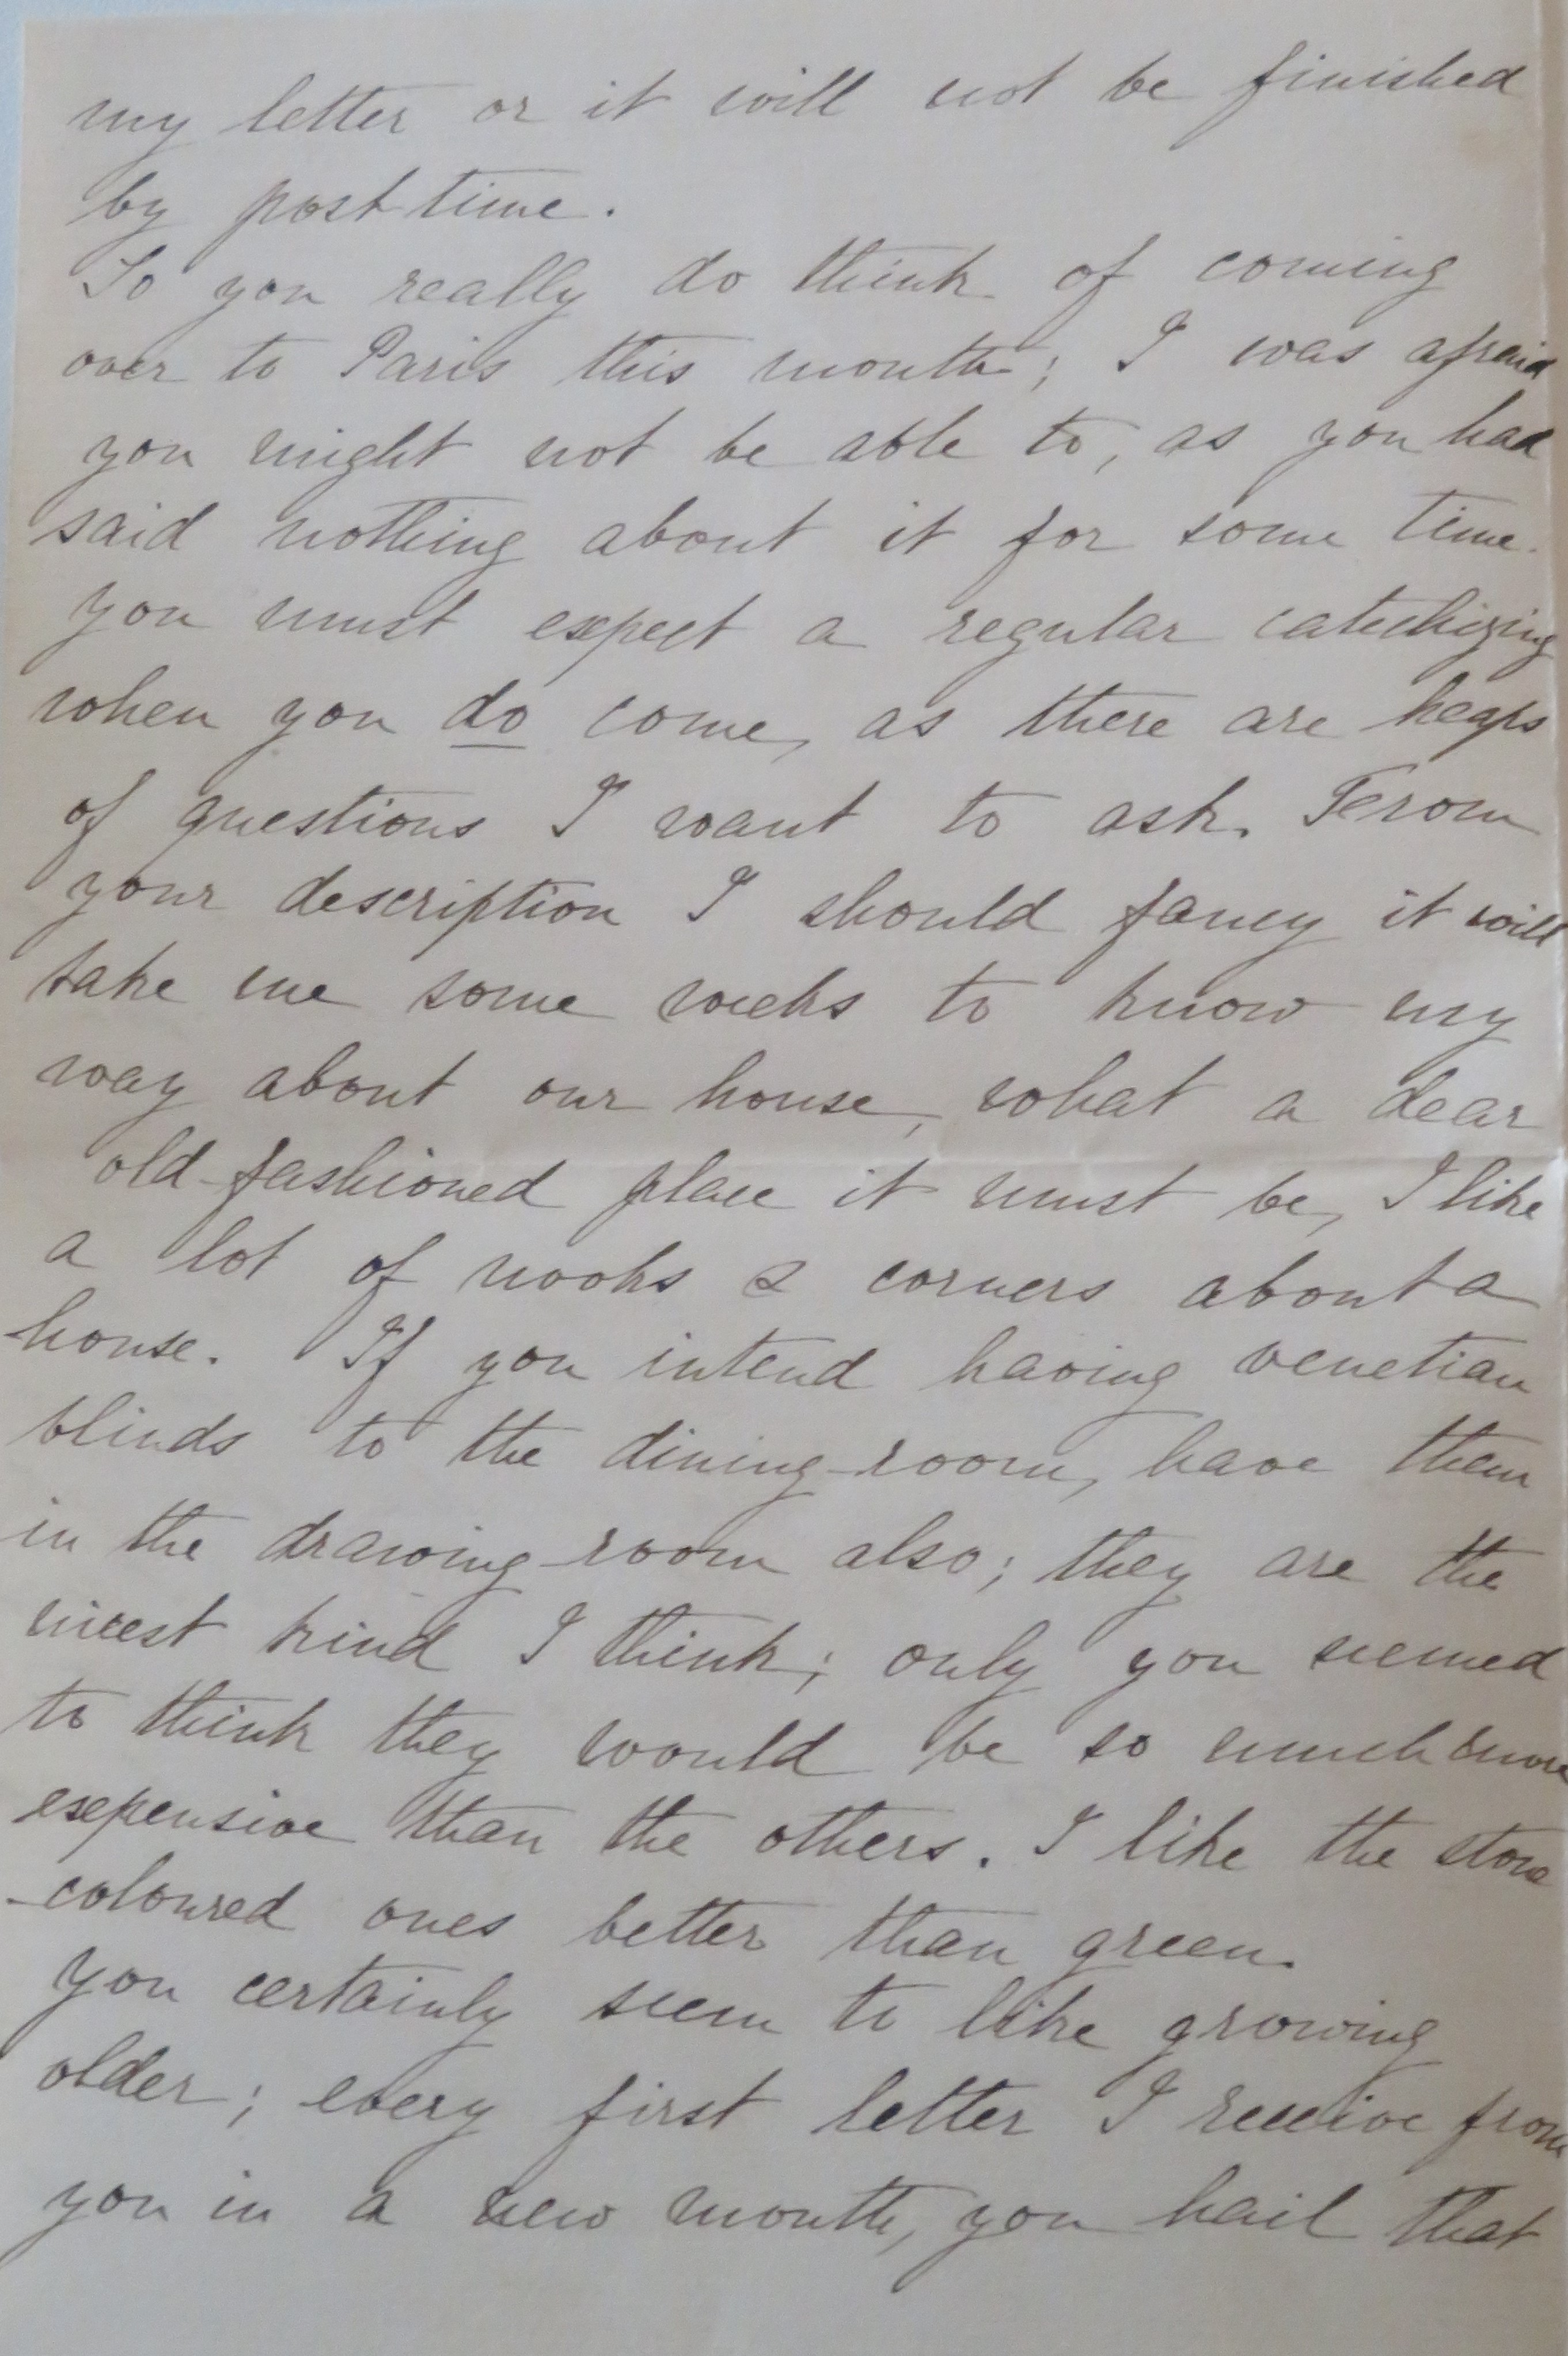 my letter or it will not be finished
by post time.
So you really do think of coming
over to Paris this month; I was afraid
you might not be able to, as you had
said nothing about it for some time.
you must expect a regular catechizing
when you do come, as there are heaps
of questions I want to ask. From
your description I should fancy it will
take me some weeks to know my
way about our house, what a dear
old-fashioned place it must be, I like
a lot of nooks & corners about a
house. If you intend having venetian
blinds to the dining-room, have them
in the drawing-room also; they are the
nicest kind I think; only you seemed
to think they would be so much more
expensive than the others. I like the stone
-coloured ones better than green.
you certainly seem to like growing
older; every first letter I receive from
you in a new month, you hail that